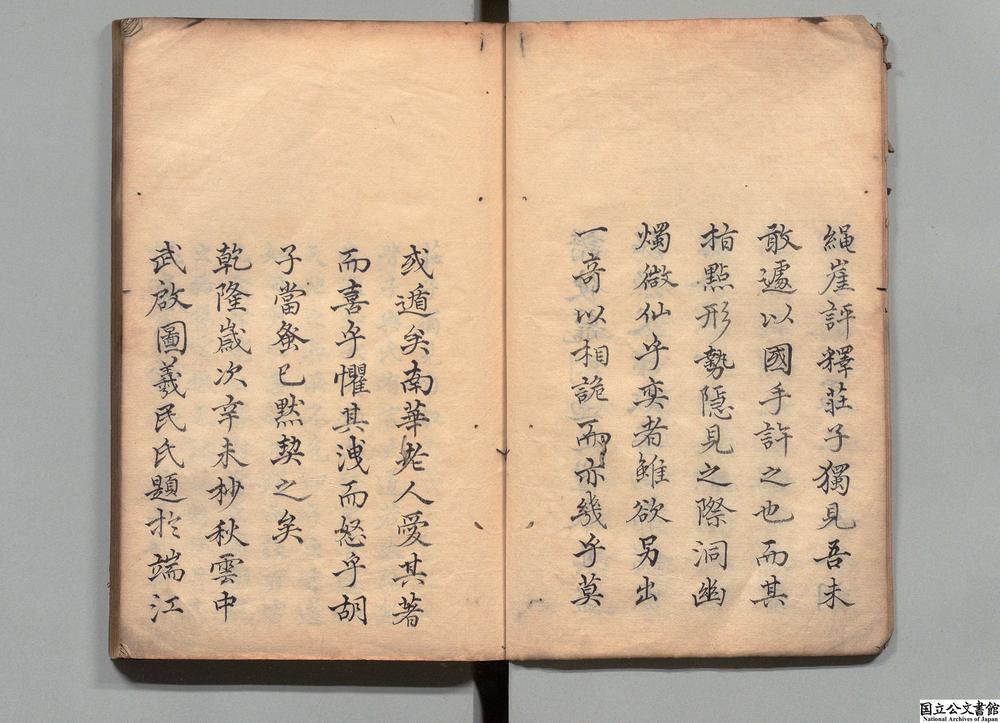 繩崖評釋莊子獨見吾未
敢遽以國手許之也而其
指點形勢隱見之際洞幽
燭微仙乎奕者雖欲另出
一奇以相詭而亦幾乎莫
或遁矣南華老人愛其著
而喜乎懼其洩而怒乎胡
子當夅已默契之矣
乾隆歲次辛未杪秋雲中
武啟圖羲民氏題於端江
国立公文書館
National Archives of Japan